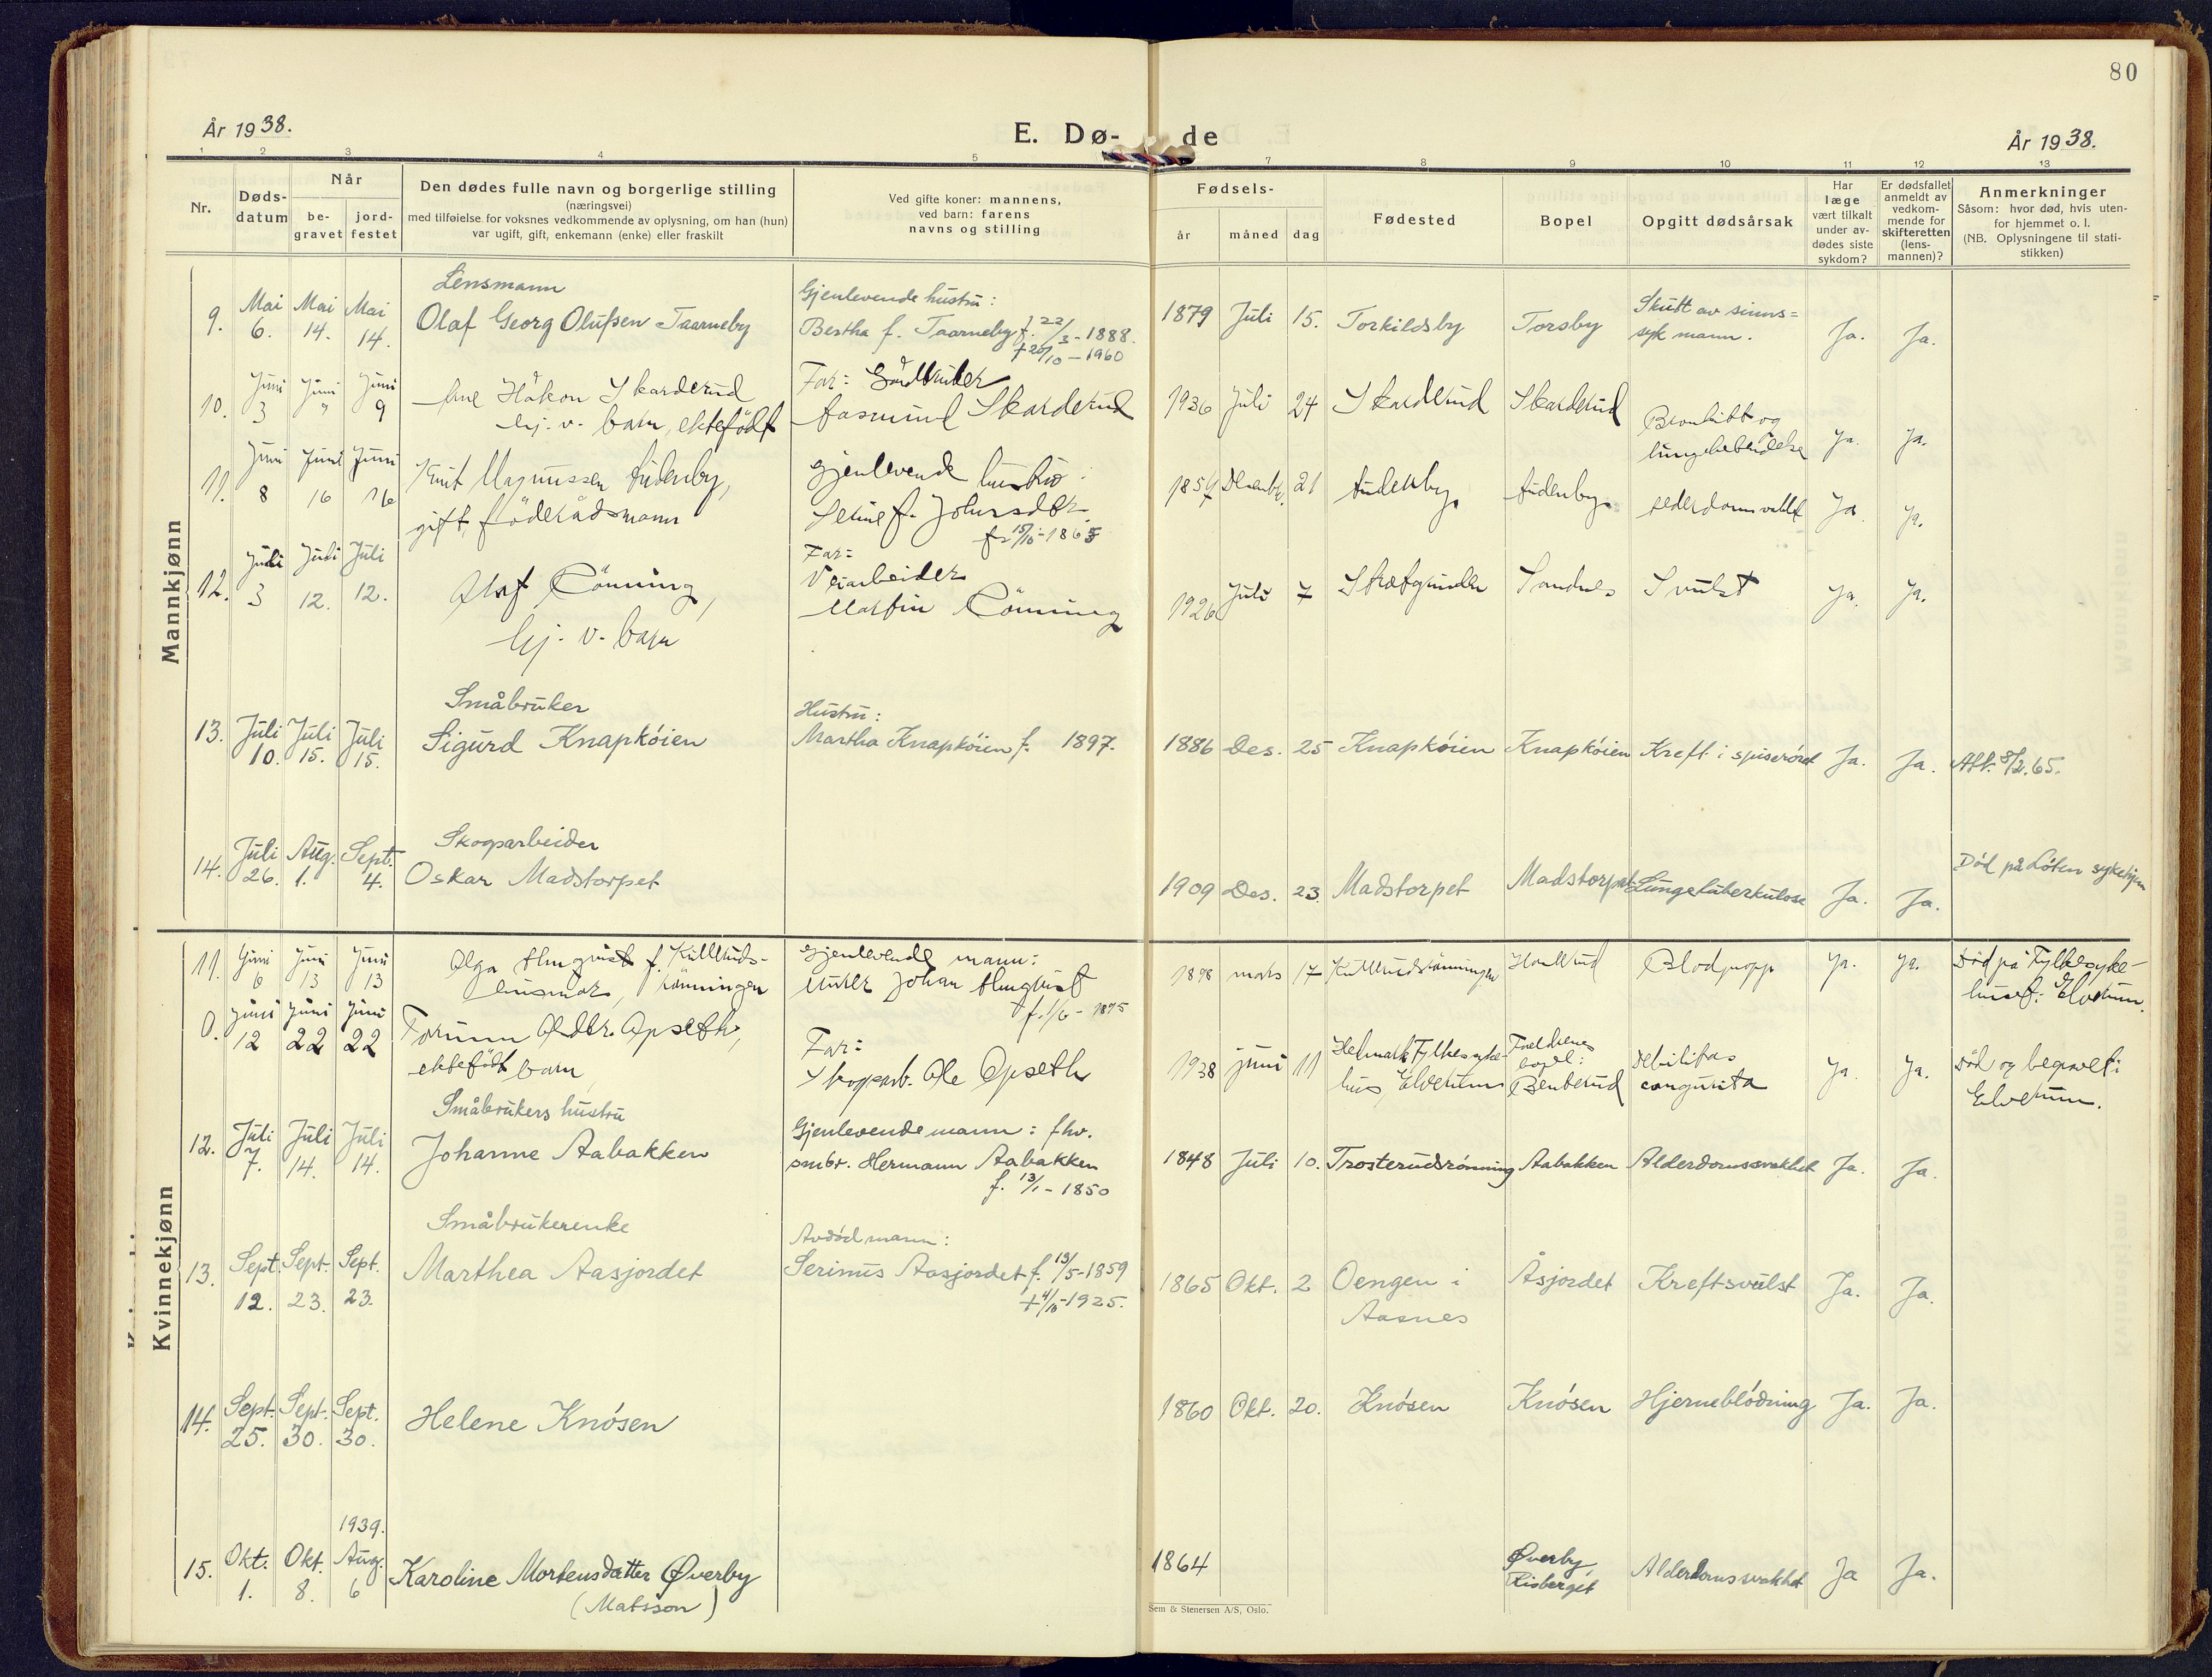 80
År 1938.
E. Dø- de
År 1938.
1 2 3 4 5 7 8 9 10 11 12 13
Nr.
Døds-
datum
Når
be-
gravet
jord-
festet
Den dødes fulle navn og borgerlige stilling
(næringsvei)
med tilføielse for voksnes vedkommende av oplysning, om han (hun)
var ugift, gift, enkemann (enke) eller fraskilt
Ved gifte koner: mannens,
ved barn: farens
navns og stilling
Fødsels-
år måned dag
Fødested
Bopel
Opgitt dødsårsak
Har
læge
vært tilkalt
under av-
dødes siste
sykdom?
Er dødsfallet
anmeldt av
vedkom-
mende for
skifteretten
(lens-
mannen)?
Anmerkninger
Såsom: hvor død, hvis uten-
for hjemmet o. l.
(NB. Oplysningene til stati-
stikken)
Mannkjønn
Lensmann
9. Mai 6. Mai 14. Mai 14. Olaf Georg Olufsen Taarneby
Gjenlevende hustru:
Bertha f. Taarneby f. 22/3-1888.
+ 20/10-1960
1879 Juli 15. Torkildsby Torsby Skutt av sinns=
syk mann. Ja. Ja.
10. Juni 3 Juni 9 Juni 9 Håkon Skarderud
hj. v. barn, ektefødt
Far: Gårdbruker
Aasmund Skarderud
1936 Juli 24 Skarderud Skarderud Bronkitt og
lungebetendelse Ja. Ja.
11. Juni 8 Juni 16 Juni 16 Knut Magnussen
gift, föderådsmann
gjenlevende hustru:
Serine f. Johnsdtr.
f. 15/10-1865
1854 Desembr. 21 Ja Ja.
12. Juli 3 Juli 12. Juli 12. Olaf Rönning,
hj. v. barn
Far:
Veiarbeider
Martin Rönning
1926 Juli 7 Sandnes Svulst Ja. Ja.
Småbruker
13. Juli 10. Juli 15. Juli 15. Sigurd Knapkøien
Hustru:
Martha Knapkøien f. 1897.
1886 Des. 25 Knapkøien Knapkøien Kreft i spiserøret Ja. Ja. Att. 8/2.65.
Skogsarbeider
14. Juli 26. Aug. 1. Sept. 4. Oskar Madstorpet
1909 Des. 23. Madstorpet Madstorpet Lungetuberkulose Ja. Ja. Død på Løten sykehjem
Kvinnekjønn
11. Juni 6 Juni 13 Juni 13 Olga Almqvist f. Kulleruds-
husmor, rönningen
gjenlevende mann:
Murer Johan Almqvist
f. 1/6-1895
1898 mars 17 Kullerudsrönningen Blodpropp Ja. Ja. Död på Fylkessyke-
huset: Elverum.
0. Juni 12 Juni 22 Juni 22 Torunn Opseth,
ektefödt barn
Far:
Skogsarb. Ole Opseth
1938 juni 11 Hedmark Fylkessyke-
hus, Elverum Foreldrenes
bopel:
Benterud Debilitas
congenita Ja. Ja. Död og begravet:
Elverum.
Småbrukers hustru
12. Juli 7. Juli 14. Juli 14. Johanne Aabakken
Gjenlevende mann: fhv.
smbr. Hermann Aabakken
f. 13/1-1850
1848 Juli 10. Trosterudsrønning Aabakken Alderdomssvakhet Ja. Ja.
Småbrukerenke
13. Sept. 12. Sept. 23. Sept. 23. Marthea Aasjordet
Avdød mann:
Serinus Aasjordet f. 13/5-1859
+ 4/10-1925.
1865 Okt. 2 Oengen i
Aasnes Åsjordet Kreftsvulst Ja. Ja.
14. Sept. 25. Sept. 30. Sept. 30. Helene Knøsen
1860 Okt. 20. Knøsen Knøsen Hjerneblødning Ja. Ja.
1939.
15. Okt. 1. Okt. 8. Aug. 6 Karoline Mortensdatter Øverby
(Matsson)
1864 Øverby,
Risberget Alderdomssvakhet Ja Ja.
Sem & Stenersen A/S, Oslo.